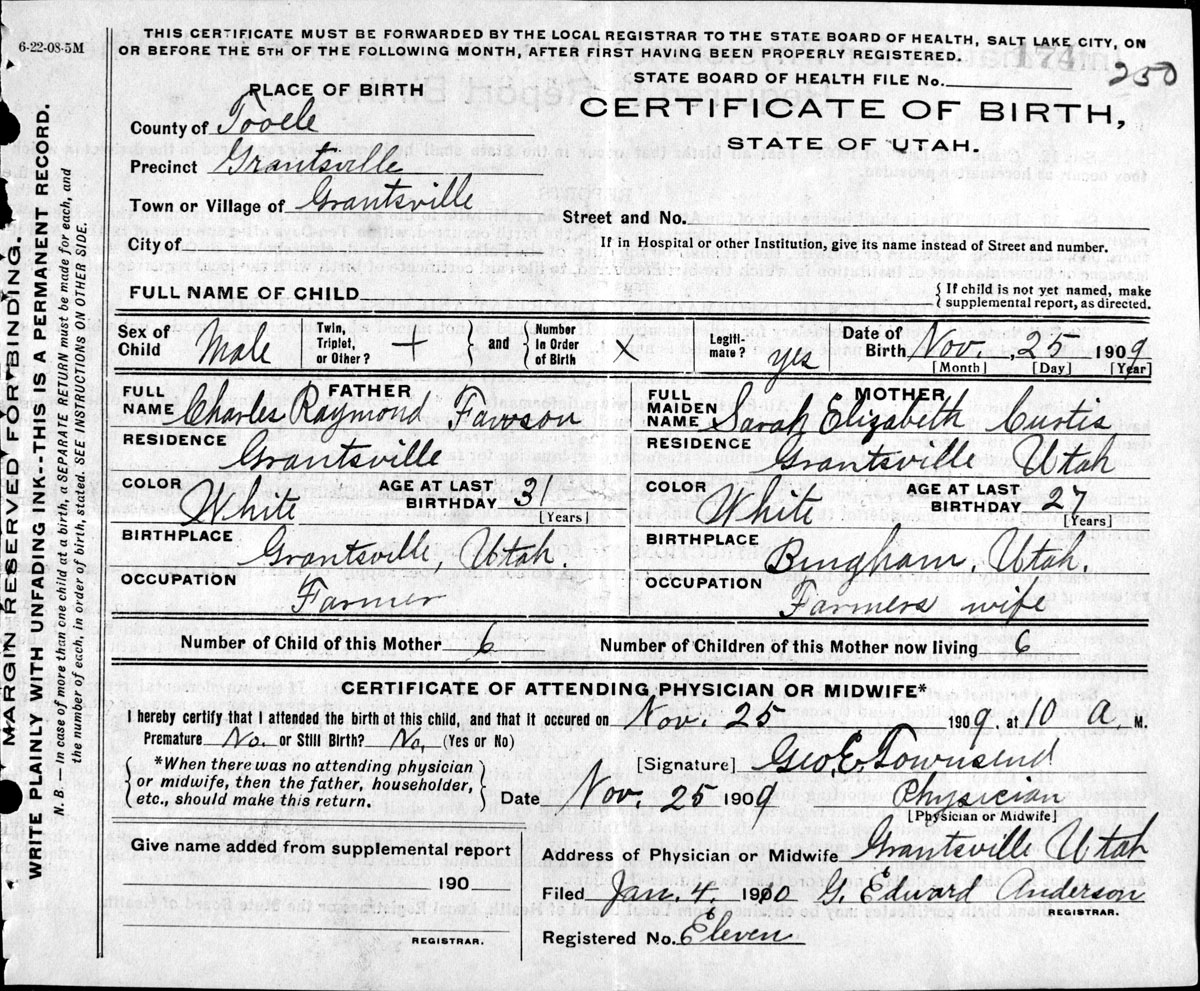 6-22-08-5M
THIS CERTIFICATE MUST BE FORWARDED BY THE LOCAL REGISTRAR TO THE STATE BOARD OF HEALTH, SALT LAKE CITY, ON
OR BEFORE THE 5TH OF THE FOLLOWING MONTH, AFTER FIRST HAVING BEEN PROPERLY REGISTERED. 174
STATE BOARD OF HEALTH FILE No. 250
PLACE OF BIRTH
CERTIFICATE OF BIRTH,
STATE OF UTAH.
County of Tooele
Precinct Grantsville
Town or Village of Grantsville
Street and No.
City of
If in Hospital or other Institution, give its name instead of Street and number.
FULL NAME OF CHILD
{ If child is not yet named, make
supplemental report, as directed.
Sex of Child Male Twin, Triplet, or Other? + } and { Number in Order of Birth X Legiti-mate? yes Date of Birth Nov. 25 1909
[Month] [Day] [Year]
FATHER
FULL NAME Charles Raymond Fawson
RESIDENCE
Grantsville
COLOR White AGE AT LAST BIRTHDAY 31
[Years]
BIRTHPLACE
Grantsville, Utah.
OCCUPATION
Farmer
MOTHER
FULL MAIDEN NAME Sarah Elizabeth Curtis
RESIDENCE
Grantsville Utah
COLOR White AGE AT LAST BIRTHDAY 27
[Years]
BIRTHPLACE
Bingham, Utah.
OCCUPATION
Farmers wife
Number of Child of this Mother 6 Number of Children of this Mother now living 6
CERTIFICATE OF ATTENDING PHYSICIAN OR MIDWIFE*
I hereby certify that I attended the birth of this child, and that it occured on Nov. 25 1909, at 10 a. M.
Premature No. or Still Birth? No. (Yes or No)
*When there was no attending physician
or midwife, then the father, householder,
etc., should make this return.
[Signature] Geo. E Townsend
Date Nov. 25 1909 Physician
[Physician or Midwife]
Give name added from supplemental report
190
REGISTRAR.
Address of Physician or Midwife Grantsville Utah
Filed Jan. 4. 1910 G. Edward Anderson
REGISTRAR.
Registered No. Eleven
MARGIN RESERVED FOR BINDING.
WRITE PLAINLY WITH UNFADING INK---THIS IS A PERMANENT RECORD.
N. B. — In case of more than one child at a birth, a SEPARATE RETURN must be made for each, and
the number of each, in order of birth, stated. SEE INSTRUCTIONS ON OTHER SIDE.